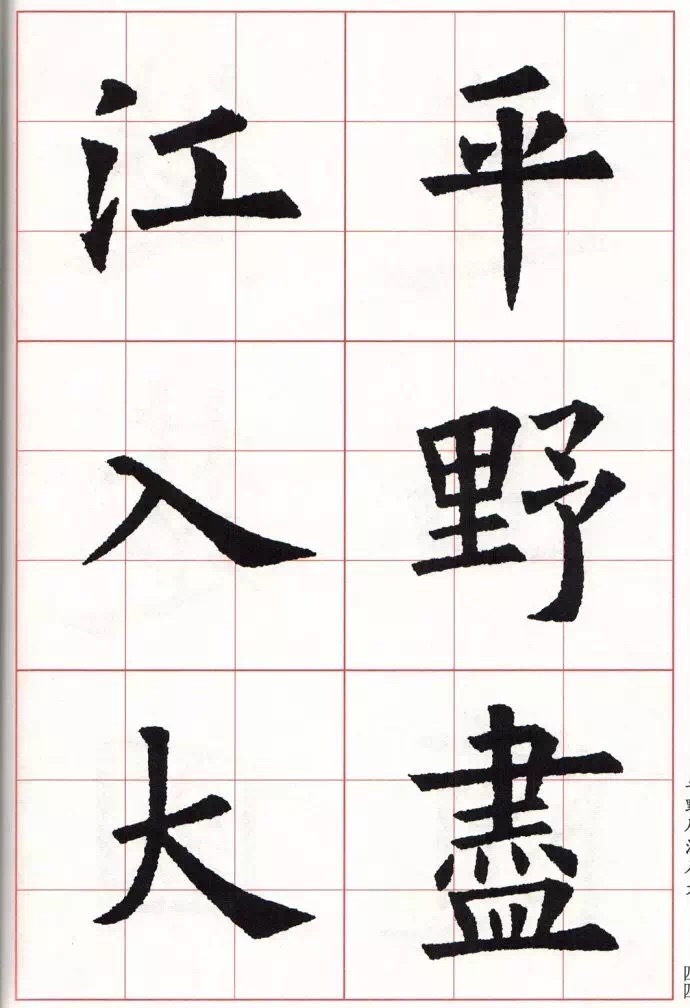 平野盡
江入大